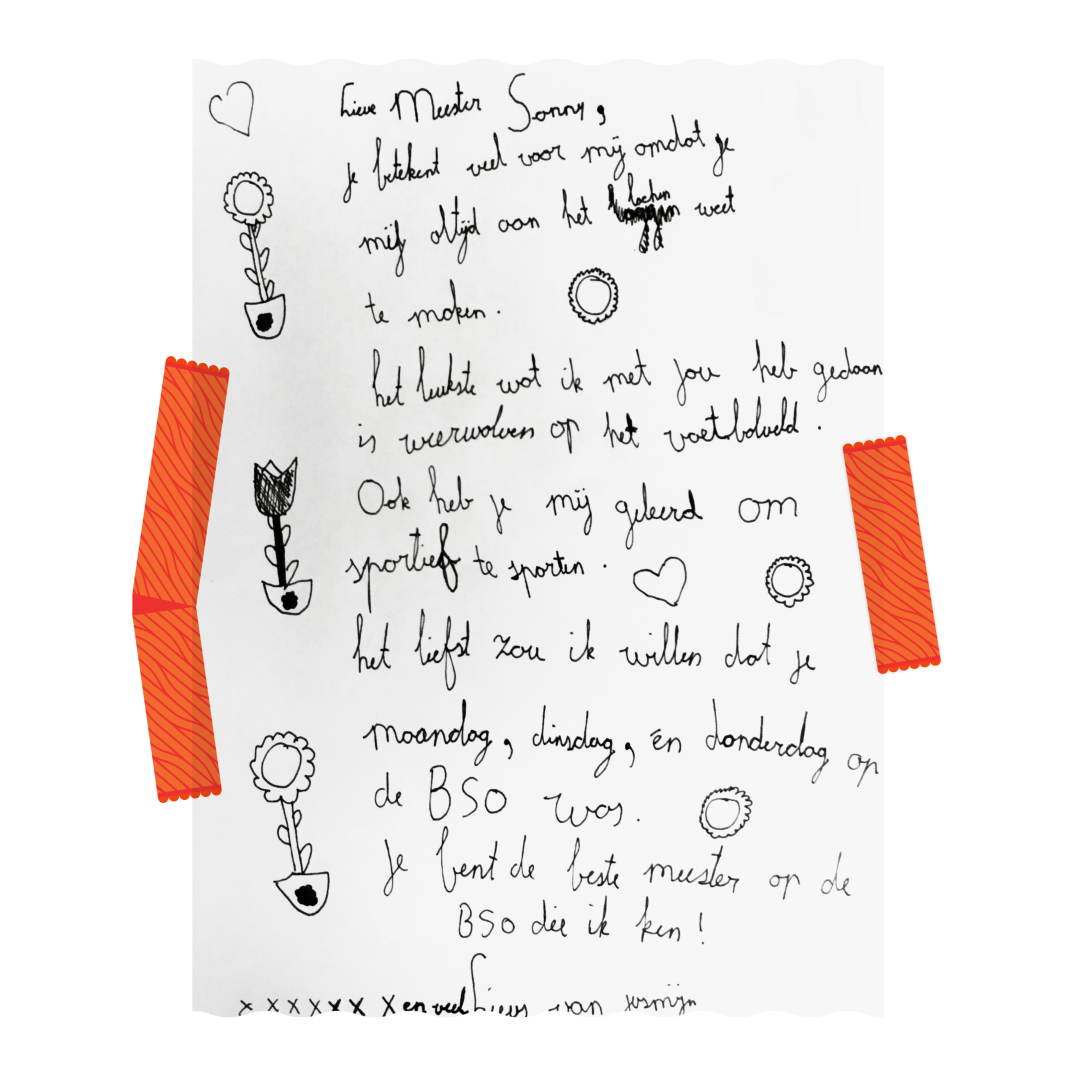 Lieve Meester Sonny,
je betekent veel voor mij omdat je
mij altijd aan het lachen weet
te maken.
het leukste wat ik met jou heb gedaan
is weerwolven op het voetbalveld.
Ook heb je mij geleerd om
sportief te sporten.
het liefst zou ik willen dat je
maandag, dinsdag, én donderdag op
de BSO was.
Je bent de beste meester op de
BSO die ik ken!
x x x x x x x en veel Lievs van